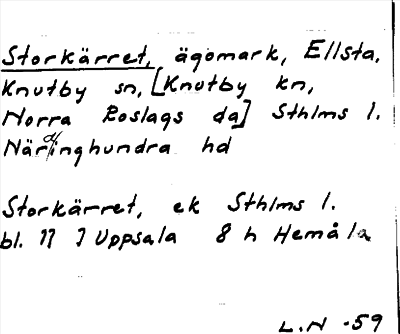 Storkärret, ägomark, Ellsta,
Knutby sn, [Knutby kn,
Norra Roslags da] Sthlms l.
Närdinghundra hd
Storkärret, ek Sthlms l.
bl. 77 J Uppsala 8 h Hemåla
L.N -59